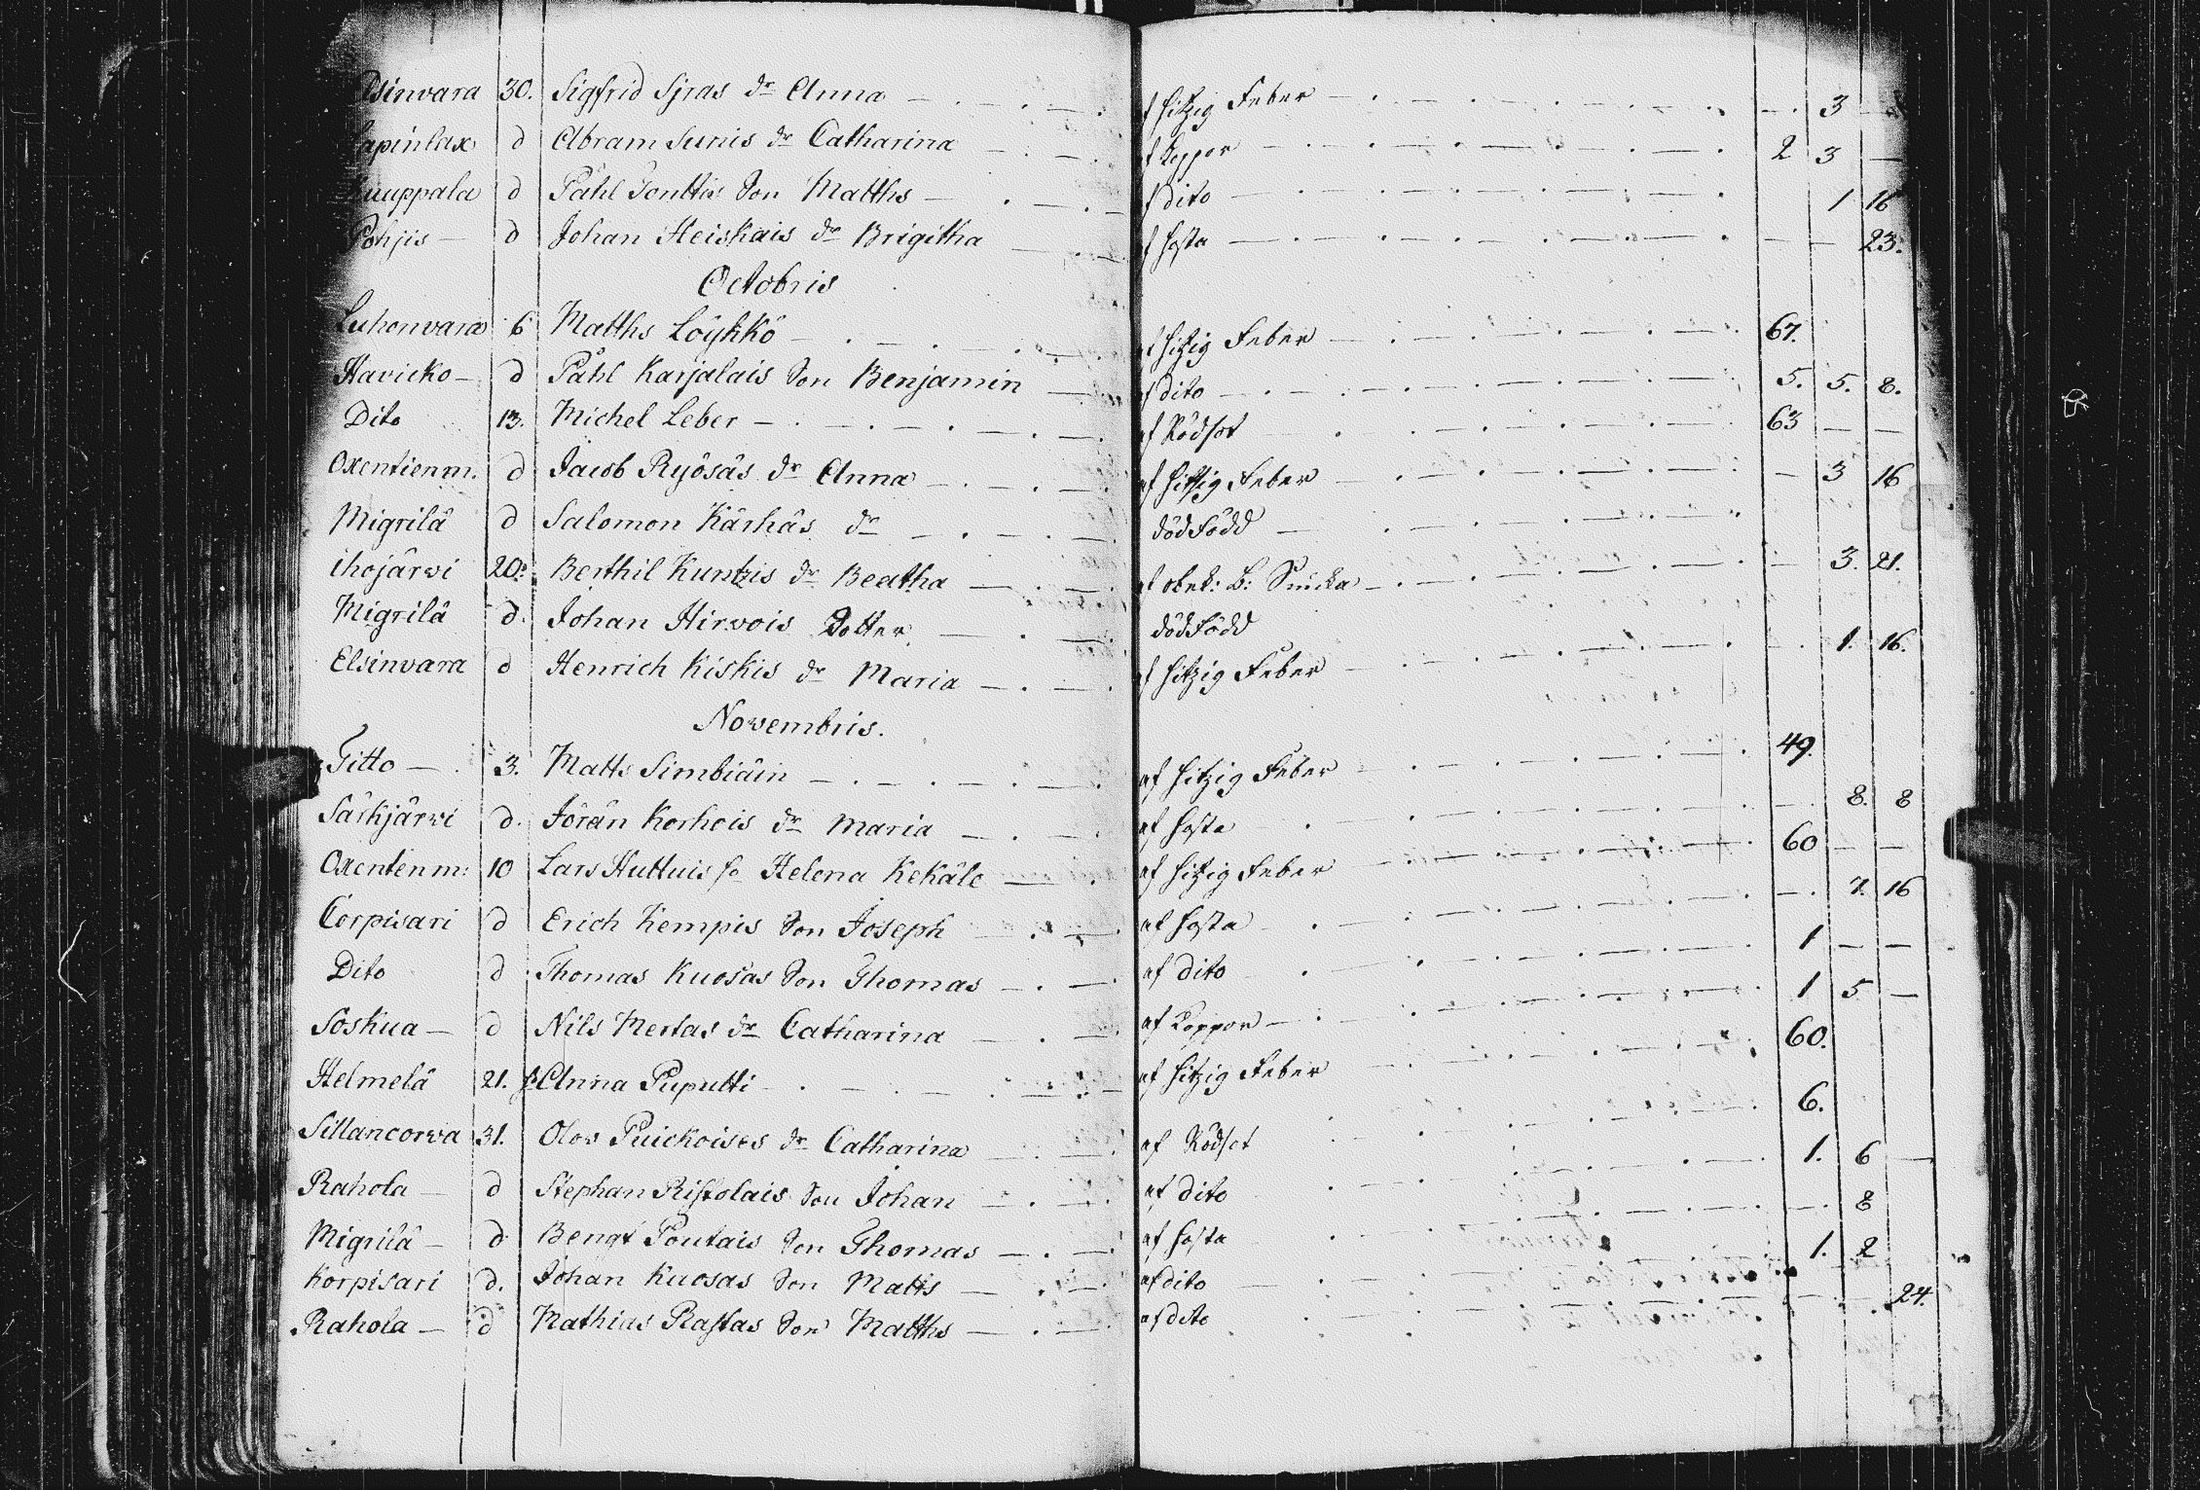 Elsinvara 30. Sigfrid Sjras dr Anna af hitzig Feber 3
Lapinlax d Abram Sunis dr Catharina af koppor 2 3
Kuuppala d Påhl Tonttis Son Matths af dito 1 16
Pohjis d Johan Heiskais dr Brigitha af hosta 23.
Octobris
Luhonvara 6 Matths Löykkö af hitzig Feber 67.
Havicko d Påhl Karjalais Son Benjamin af dito 5. 5. 8.
Dito 13. Michel Leber af Rödsot 63
Oxentienm. d Jacob Ryösäs dr Anna af hitzig Feber 3 16
Migrilä d Salomon Kärhäs dr dödfödd
ihojärwi 20. Berthil Kuntzis dr Beatha af obek: B: Siucka 3. 21.
Migrilä d. Johan Hirvois Dotter dödfödd
Elsinvara d Henrich Kiskis dr Maria af hitzig Feber 1. 16.
Novembris.
Titto 3. Matts Simbiäin af hitzig Feber 49.
Särkjärwi d. Jörän Korhois dr Maria af hosta 8. 8
Oxentenm: 10 Lars Huttuis Helena Kekäle af hitzig Feber 60
Corpisari d Erich Kempis Son Joseph af hosta 7. 16
Dito d Thomas Kuosas Son Thomas af dito 1
Soskua d Nils Mertas dr Catharina af koppor 1 5
Helmelä 21. Anna Puputti af hitzig Feber 60.
Sillancorva 31. Olov Puickoises dr Catharina af Rödsot 6.
Rahola d Stephan Ristolais Son Johan af dito 1. 6
Migrilä d Bengt Poutais Son Thomas af hosta 8
Korpisari d. Johan Kuosas Son Matts af dito 1. 2
Rahola d Mathias Rastas Son Matths af dito 24.